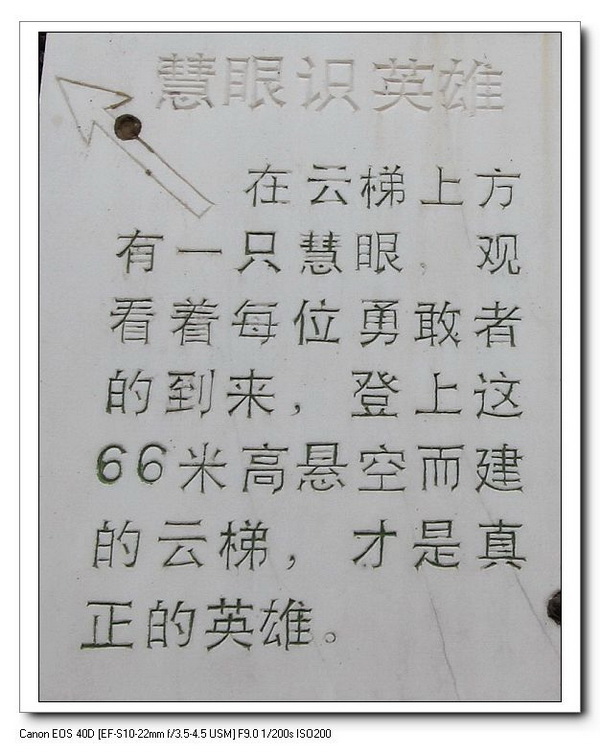 慧眼识英雄
在云梯上方
有一只慧眼，观
看着每位勇敢者
的到来，登上这
66米高悬空而建
的云梯，才是真
正的英雄。
Canon EOS 40D [EF-S10-22mm f/3.5-4.5 USM] F9.0 1/200s ISO200